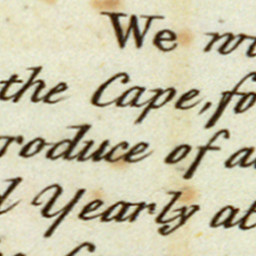 We
the Cape, fo
roduce of a
Yearly at